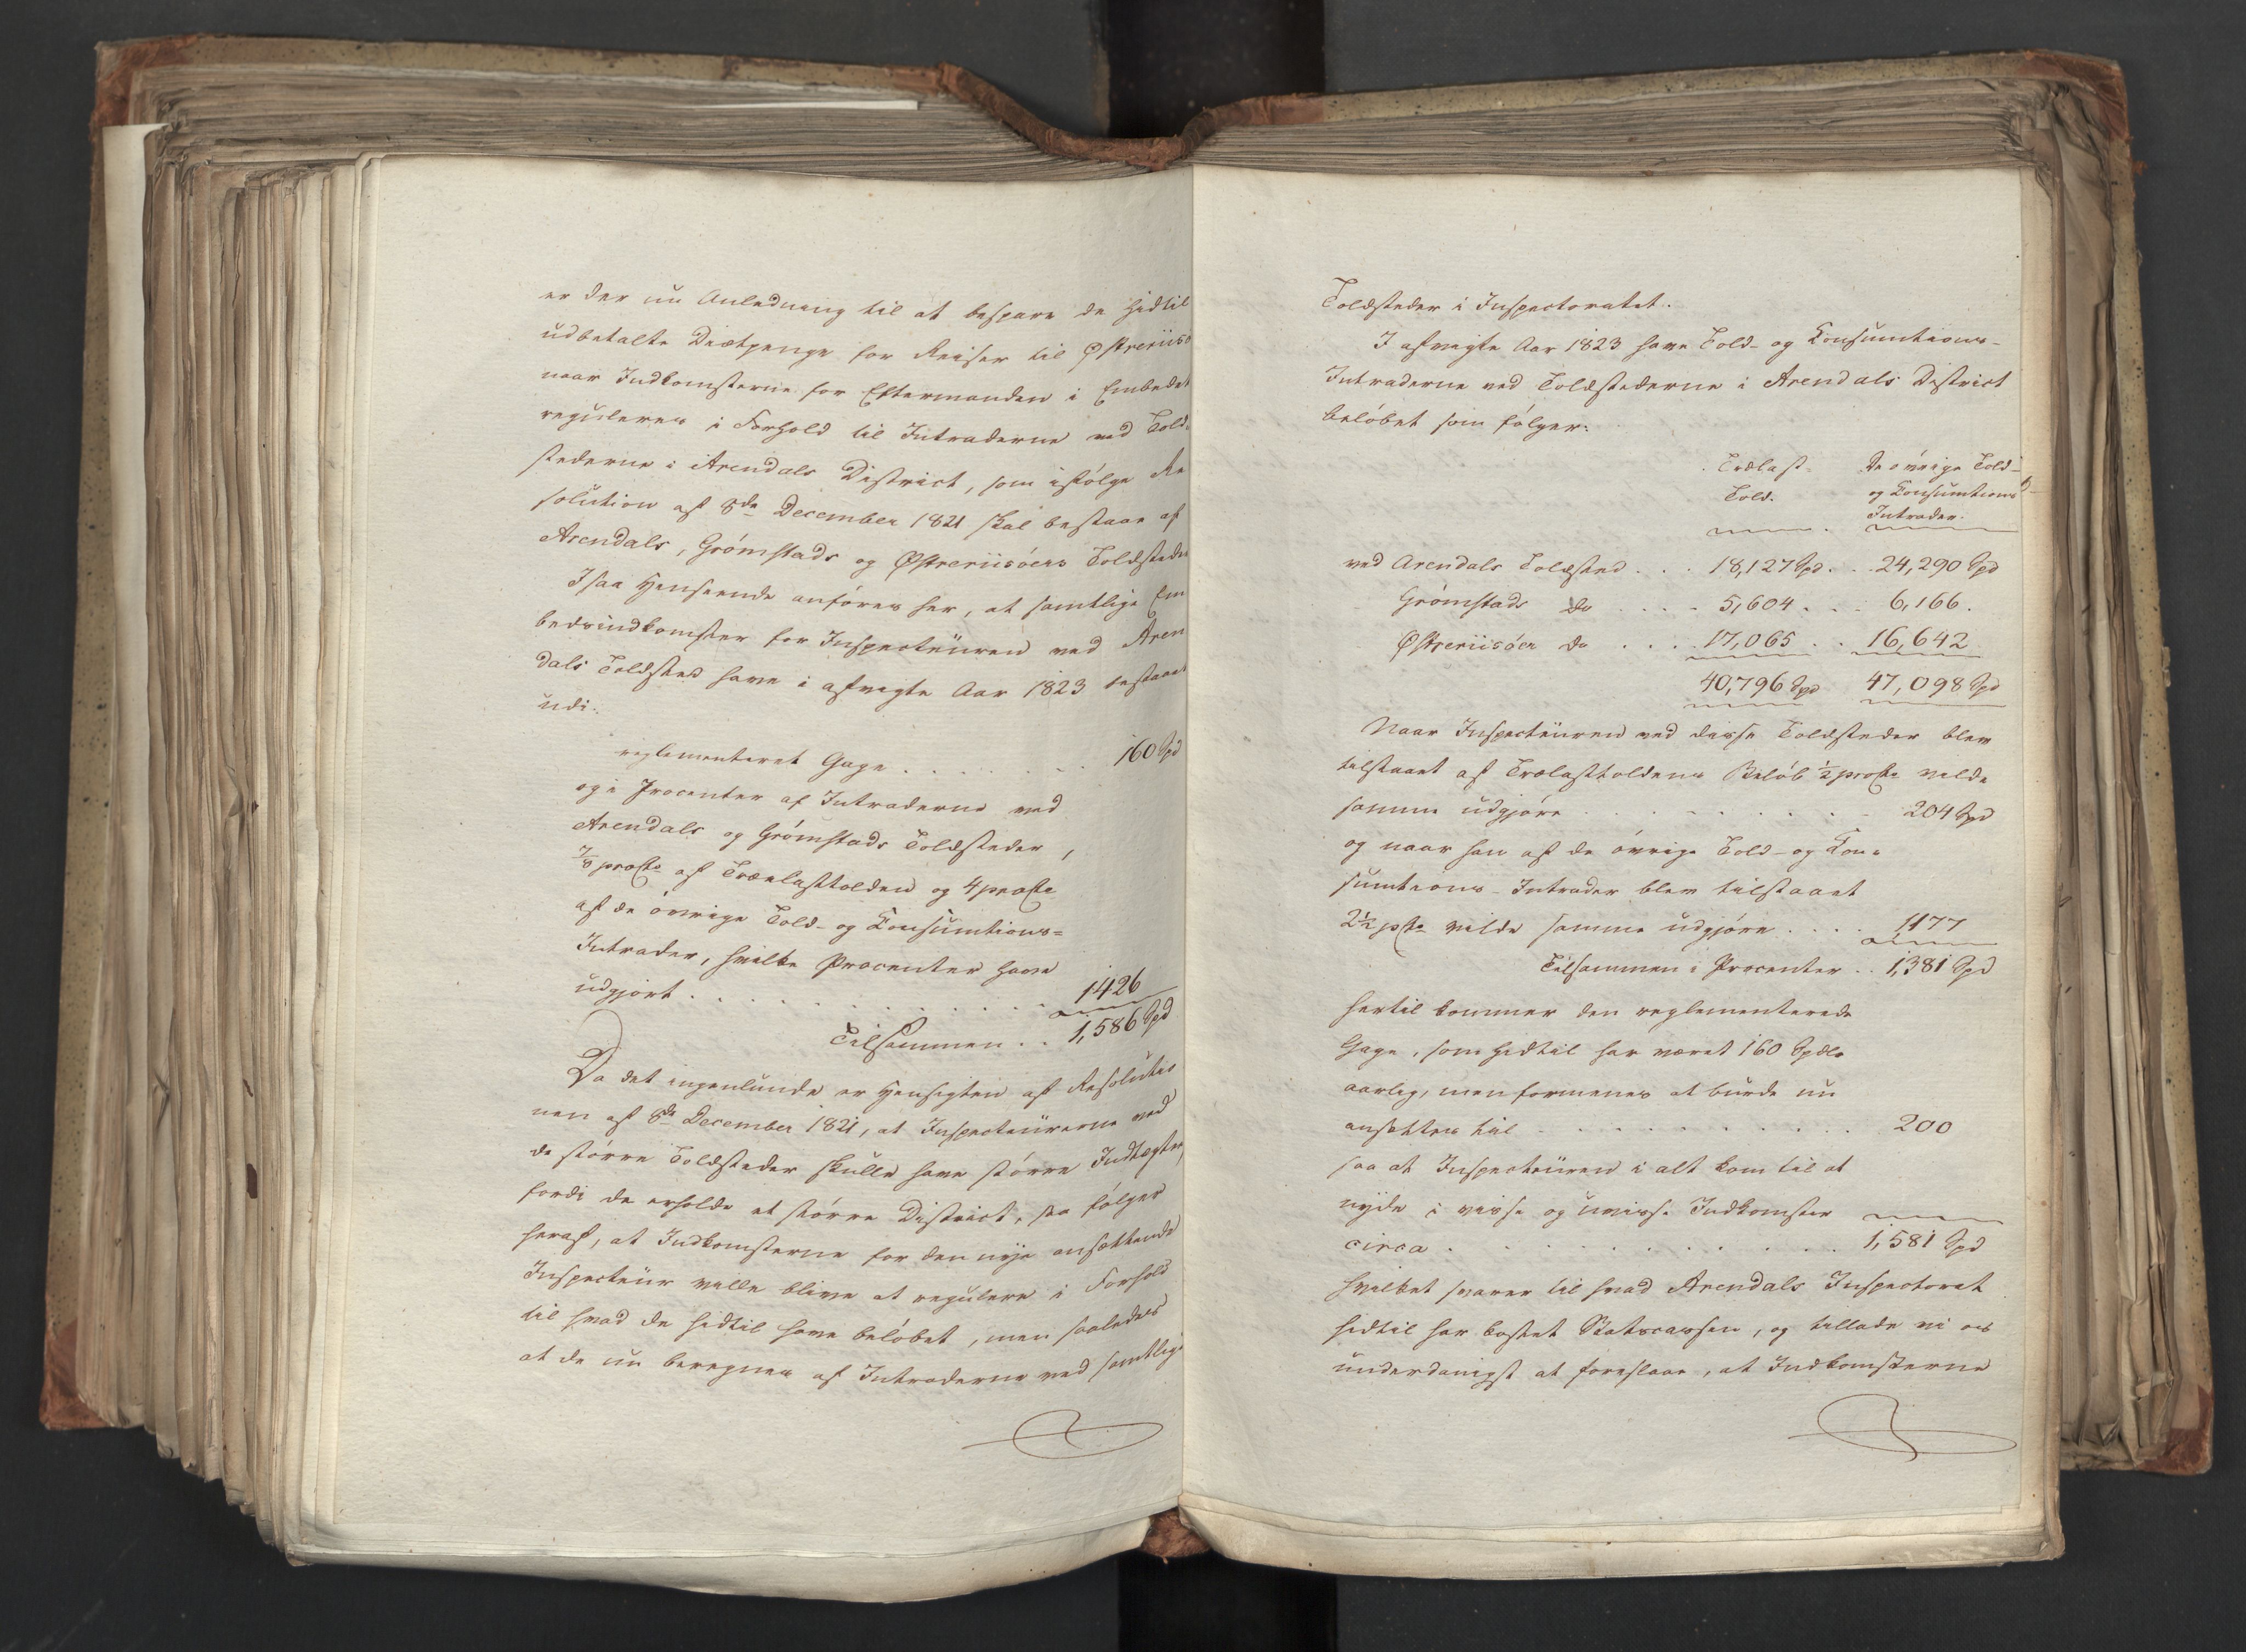 er der nu Anledning til at bespare de hidtil
udbetalte Diætpenge for Reiser til Østeriisö
naar Indkomsterne for Eftermanden i Embedet
reguleres i Forhold til Intraderne ved Told-
stederne i Arendals District, som ifölge Re
solution af 8de December 1821 skal bestaae af
Arendals, Grömstads og Østreriisöers Toldsteder
I saa Henseende anföres her, at samtlige Em
bedsindkomster for Inspecteüren ved Aren
dals Toldsted have i afvigte Aar 1823 bestaaet
udi:
reglementeret Gage . . . . . . . 160 Spd
og i Procenter af Intraderne ved
Arendals og Grömstads Toldsteder,
7/8 proCto af Trælasttolden og 4 proCto
af de övrige Told- og Consumtions-
Intrader, hvilke Procenter have
udgjort . . . . . . . . . . . . 1426
Tilsammen . . 1,586 Spd
Da det ingenlunde er Hensigten af Resolutio
nen af 8de December 1821, at Inspecteürerne ved
de större Toldsteder skulle have större Indtægter,
fordi de erholde et större District, saa fölger
heraf, at Indkomsterne for den nye ansættende
Inspecteür ville blive at regulere i Forhold
til hvad de hidtil have belöbet, men saaledes
at de nu beregnes af Intraderne ved samtlige
Toldsteder i Inspectoratet.
I afvigte Aar 1823 have Told- og Consumtions-
Intraderne ved Toldstederne i Arendals District
belöbet som fölger:
Trælast- De övrige Told-
Told. og Consumtions-
Intrader.
ved Arendals Toldsted . . . 18,127 Spd. . . 24,290 Spd
Grömstads do . . . . 5,604 . . . 6,166.
Østreriisöer do . . . . 17,065 . . 16,642
40,796 Spd 47,098 Spd
Naar Inspecteüren ved disse Toldsteder blev
tilstaaet af Trælasttoldens Belöb 1/2 proCto vilde
samme udgjöre . . . . . . . . 204 Spd
og naar han af de övrige Told- og Con-
sumtions-Intrader blev tilstaaet
2 1/2 pCto vilde samme udgjöre . . . . 1177
Tilsammen i Procenter . . 1,381 Spd
hertil kommer den reglementerede
Gage, som hidtil har været 160 Spdlr
aarlig, men formenes at burde nu
ansættes til . . . . . . . . . . 200
saa at Inspecteüren i alt kom til at
nyde i visse og uvisse Indkomster
circa . . . . . . . . . . . . . 1,581 Spd
hvilket svarer til hvad Arendals Inspectorat
hidtil har kostet Statscassen, og tillade vi os
underdanigst at foreslaae, at Indkomsterne